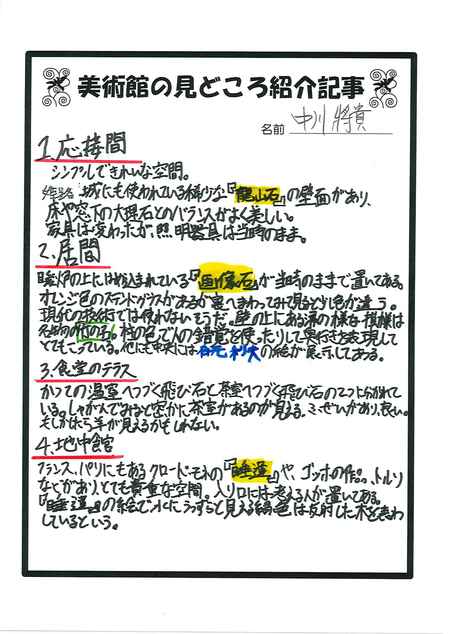 美術館の見どころ紹介記事
名前 中川 將貴
1.応接間
シンプルできれいな空間。
城にも使われている様な『龍山石』の壁面があり、
床や窓下の大理石とのバランスがよく美しい。
家具は変わったが照明器具は当時のまま。
2.居間
暖炉の上にはめ込まれている『画像石』が当時のままで置いてある。
オレンジ色のステンドグラスがあるが裏へまわってみて見ると少し色が違う。
現代の技術では使わないそうだ。壁の上にある溝の様な模様は
名前の竹の石。柱の色で人の錯覚を使ったりして奥行きを表現して
とてもこっている。他にも中央には の絵が展示してある。
3.食堂のテラス
かつての温室へつづく飛び石と茶室へつづく飛び石の2つに分かれて
いる。しゃがんでみると密かに茶室があるのが見える。ふぜいがあり、良い。
もしかしたら羊が見えるかもしれない。
4.地中館
フランス、パリにもあるクロード・モネの『睡蓮』や、ゴッホの作。、トルソ
などがあり、とても貴重な空間。入り口には考える人が置いてある。
『睡蓮』の絵で水にうっすらと見える緑色は反射した木を表わ
しているという。